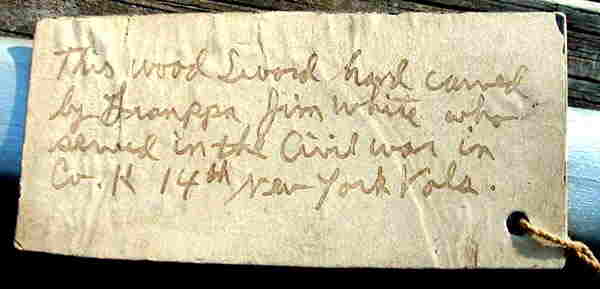 This wood Sword hand carved
by Gramppa Jim White who
served in the Civil war in
Co. K 14th New York Vols.